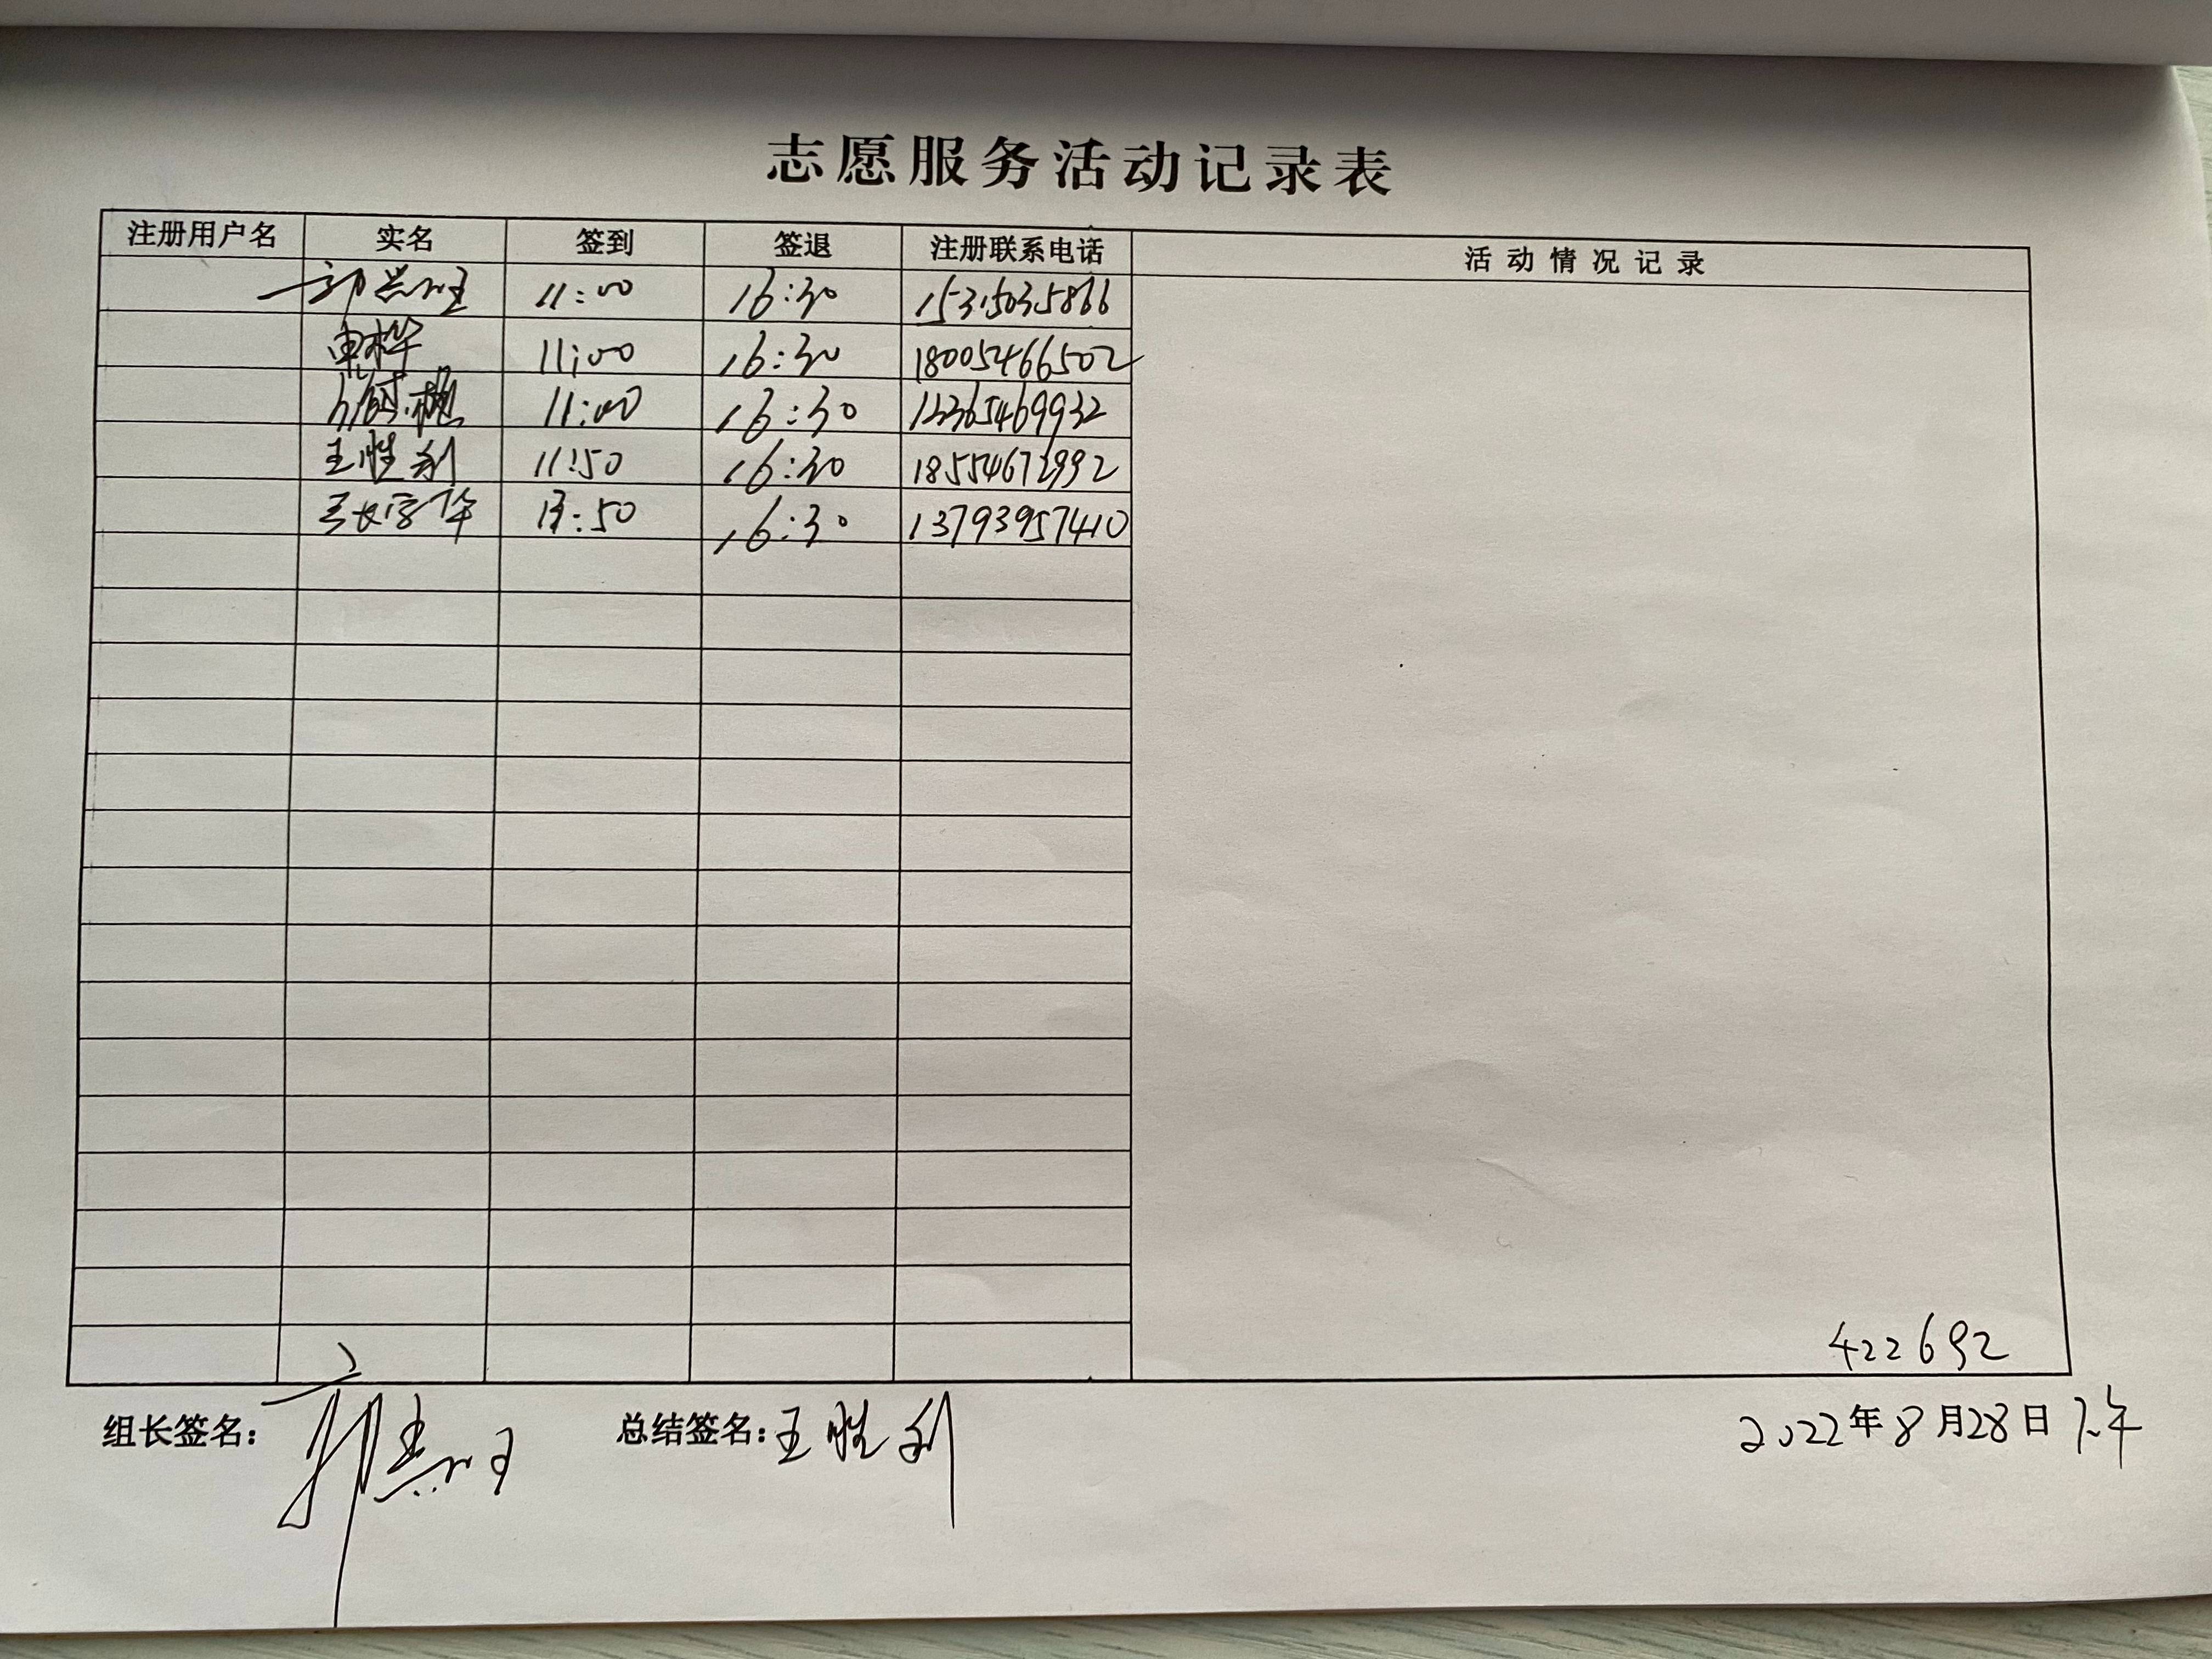 志愿服务活动记录表
注册用户名 实名 签到 签退 注册联系电话 活动情况记录
11:00 16:30 15315035866
11:00 16:30 18005466502
11:00 16:30
王胜利 11:50 16:30 18554672992
13:50 16:30 13793957410
422692
组长签名: 总结签名:王胜利 2022年8月28日下午